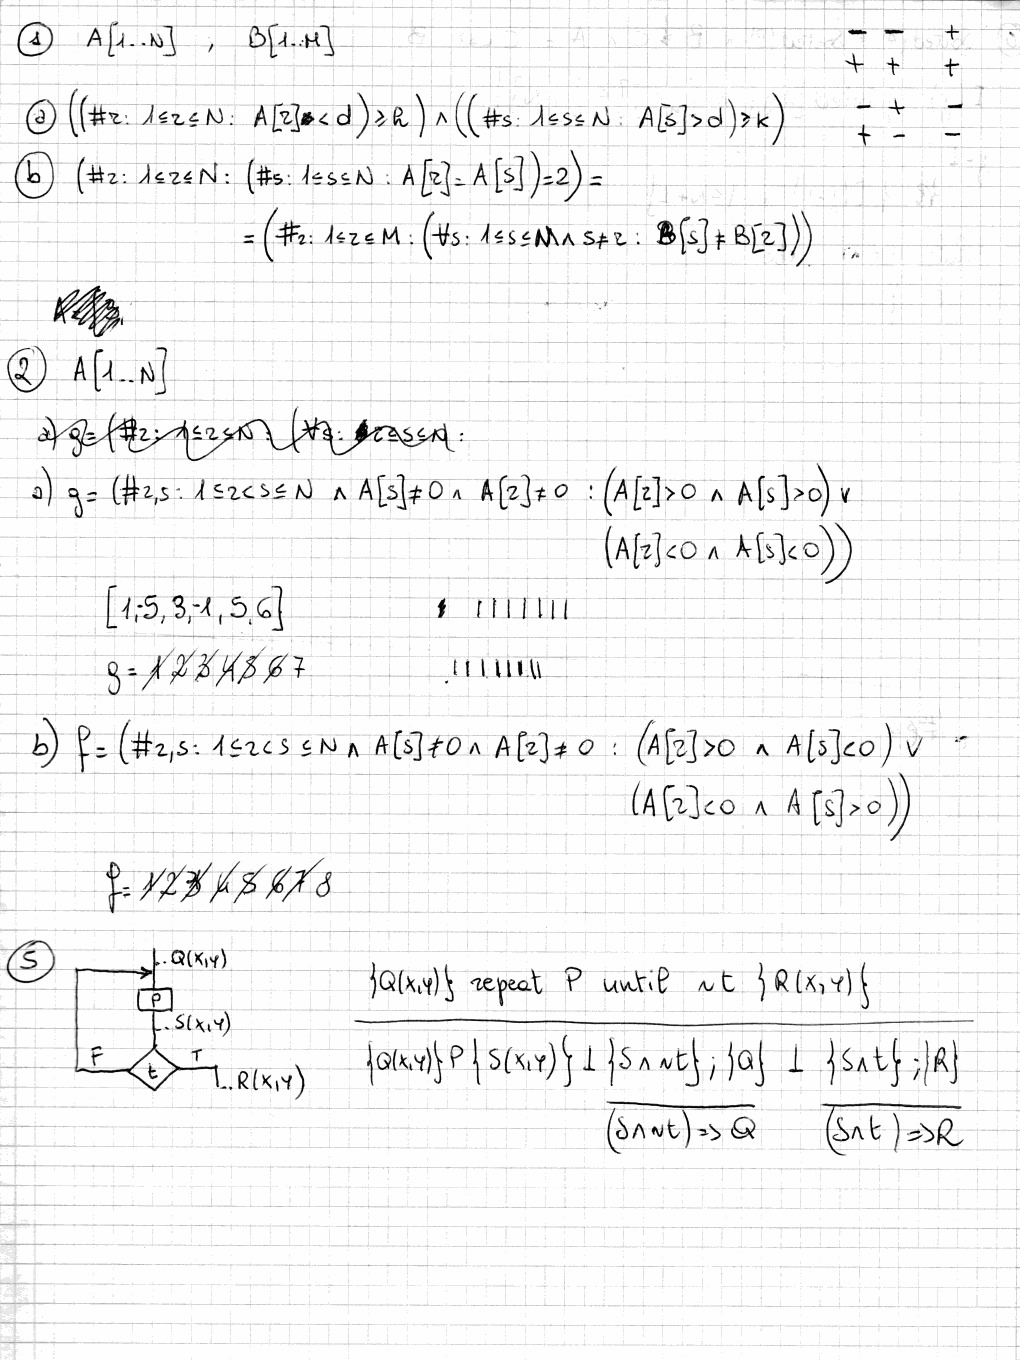 ① A[1..N] , B[1..M]
- - +
+ + +
- + -
+ - -
ⓐ ((#r: 1≤r≤N: A[r]<d)≥R) ∧ ((#s: 1≤s≤N: A[s]>d)≥k)
ⓑ (#r: 1≤r≤N: (#s: 1≤s≤N: A[r]=A[s])=2) =
= (#r: 1≤r≤M: (∀s: 1≤s≤M ∧ s≠r: B[s]≠B[r]))
② A[1..N]
a) g= (#r: 1≤r≤N: (∀s: r≤s≤N:
a) g= (#r,s: 1≤r<s≤N ∧ A[s]≠0 ∧ A[r]≠0 : (A[r]>0 ∧ A[s]>0) ∨
(A[r]<0 ∧ A[s]<0))
[1,-5,3,-1,5,6]
g= 1 2 3 4 5 6 7
b) f= (#r,s: 1≤r<s≤N ∧ A[s]≠0 ∧ A[r]≠0 : (A[r]>0 ∧ A[s]<0) ∨
(A[r]<0 ∧ A[s]>0))
f= 1 2 3 4 5 6 7 8
⑤ Q(x,y)
P
S(x,y)
F t T
R(x,y)
{Q(x,y)} repeat P until ~t {R(x,y)}
{Q(x,y)} P {S(x,y)} ⊥ {S∧~t};{Q} ⊥ {S∧t};{R}
(S∧~t)=>Q (S∧t)=>R